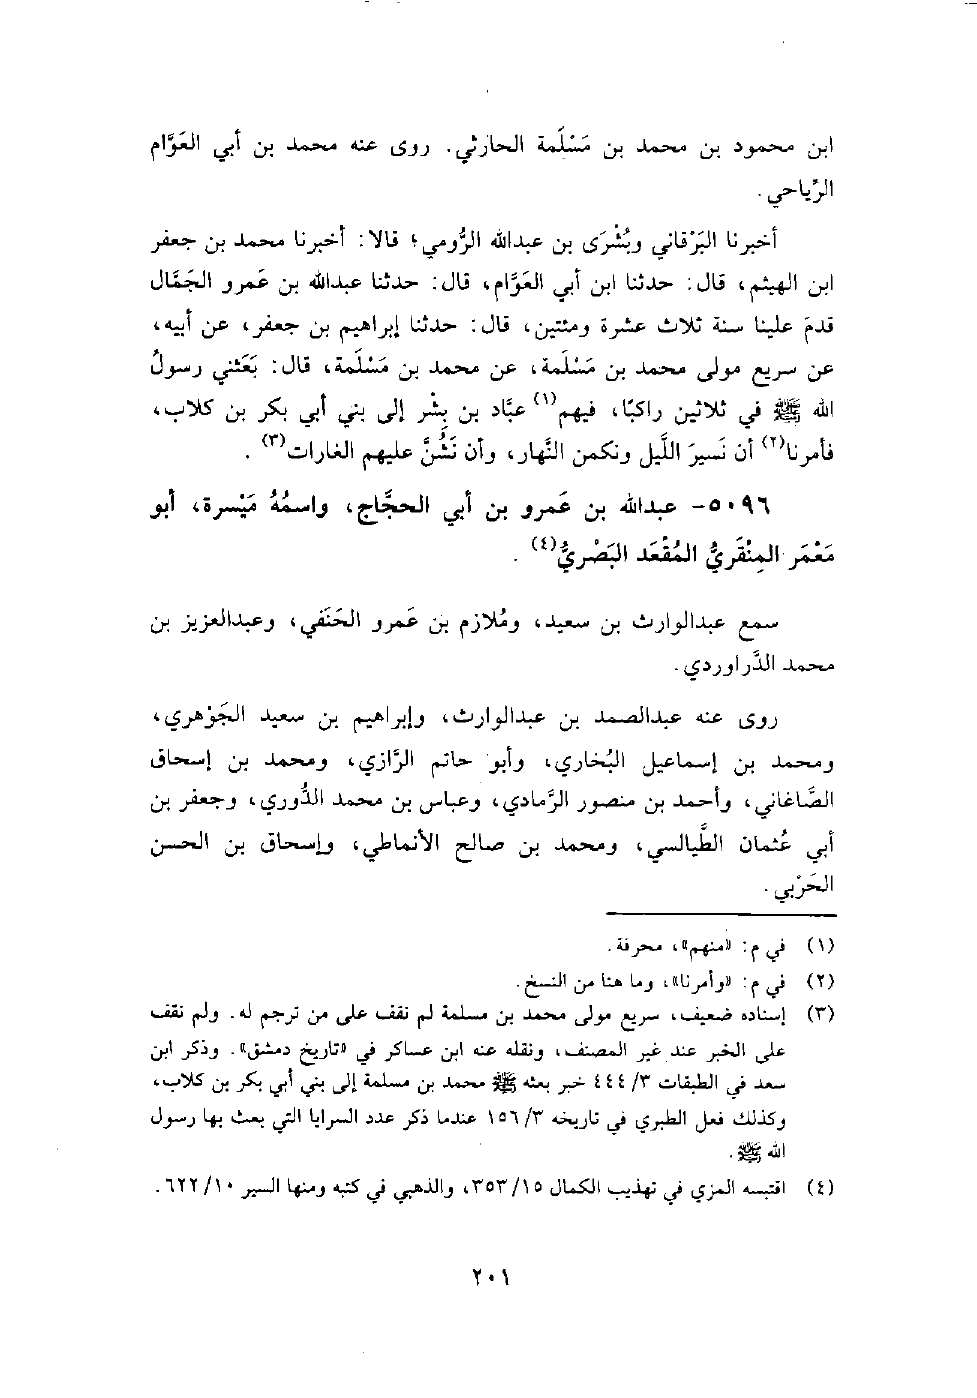 ابن محمود بن محمد بن مَسْلَمة الحارثي. روى عنه محمد بن أبي العَوَّام
الرِّياحي.
أخبرنا البَرْقاني وبُشْرَى بن عبدالله الرُّومي؛ قالا: أخبرنا محمد بن جعفر
ابن الهيثم، قال: حدثنا ابن أبي العَوَّام، قال: حدثنا عبدالله بن عَمرو الجَمَّال
قدمَ علينا سنة ثلاث عشرة ومئتين، قال: حدثنا إبراهيم بن جعفر، عن أبيه،
عن سريع مولى محمد بن مَسْلَمة، عن محمد بن مَسْلَمة، قال: بَعَثني رسولُ
الله ﷺ في ثلاثين راكبًا، فيهم(١) عبَّاد بن بِشْر إلى بني أبي بكر بن كلاب،
فأمرنا(٢) أن نَسيرَ اللَّيل ونكمن النَّهار، وأن نَشُنَّ عليهم الغارات(٣).
٥٠٩٦- عبدالله بن عَمرو بن أبي الحجَّاج، واسمُهُ مَيْسرة، أبو
مَعْمَر المِنْقَريُّ المُقْعَد البَصْريُّ(٤).
سمع عبدالوارث بن سعيد، ومُلازم بن عَمرو الحَنَفي، وعبدالعزيز بن
محمد الدَّراوردي.
روى عنه عبدالصمد بن عبدالوارث، وإبراهيم بن سعيد الجَوْهري،
ومحمد بن إسماعيل البُخاري، وأبو حاتم الرَّازي، ومحمد بن إسحاق
الصَّاغاني، وأحمد بن منصور الرَّمادي، وعباس بن محمد الدُّوري، وجعفر بن
أبي عُثمان الطَّيالسي، ومحمد بن صالح الأنماطي، وإسحاق بن الحسن
الحَرْبي.
(١) في م: «منهم»، محرفة.
(٢) في م: «وأمرنا»، وما هنا من النسخ.
(٣) إسناده ضعيف، سريع مولى محمد بن مسلمة لم نقف على من ترجم له. ولم نقف
على الخبر عند غير المصنف، ونقله عنه ابن عساكر في «تاريخ دمشق». وذكر ابن
سعد في الطبقات ٣/ ٤٤٤ خبر بعثه ﷺ محمد بن مسلمة إلى بني أبي بكر بن كلاب،
وكذلك فعل الطبري في تاريخه ٣/ ١٥٦ عندما ذكر عدد السرايا التي بعث بها رسول
الله ﷺ.
(٤) اقتبسه المزي في تهذيب الكمال ١٥/ ٣٥٣، والذهبي في كتبه ومنها السير ١٠/ ٦٢٢.
٢٠١